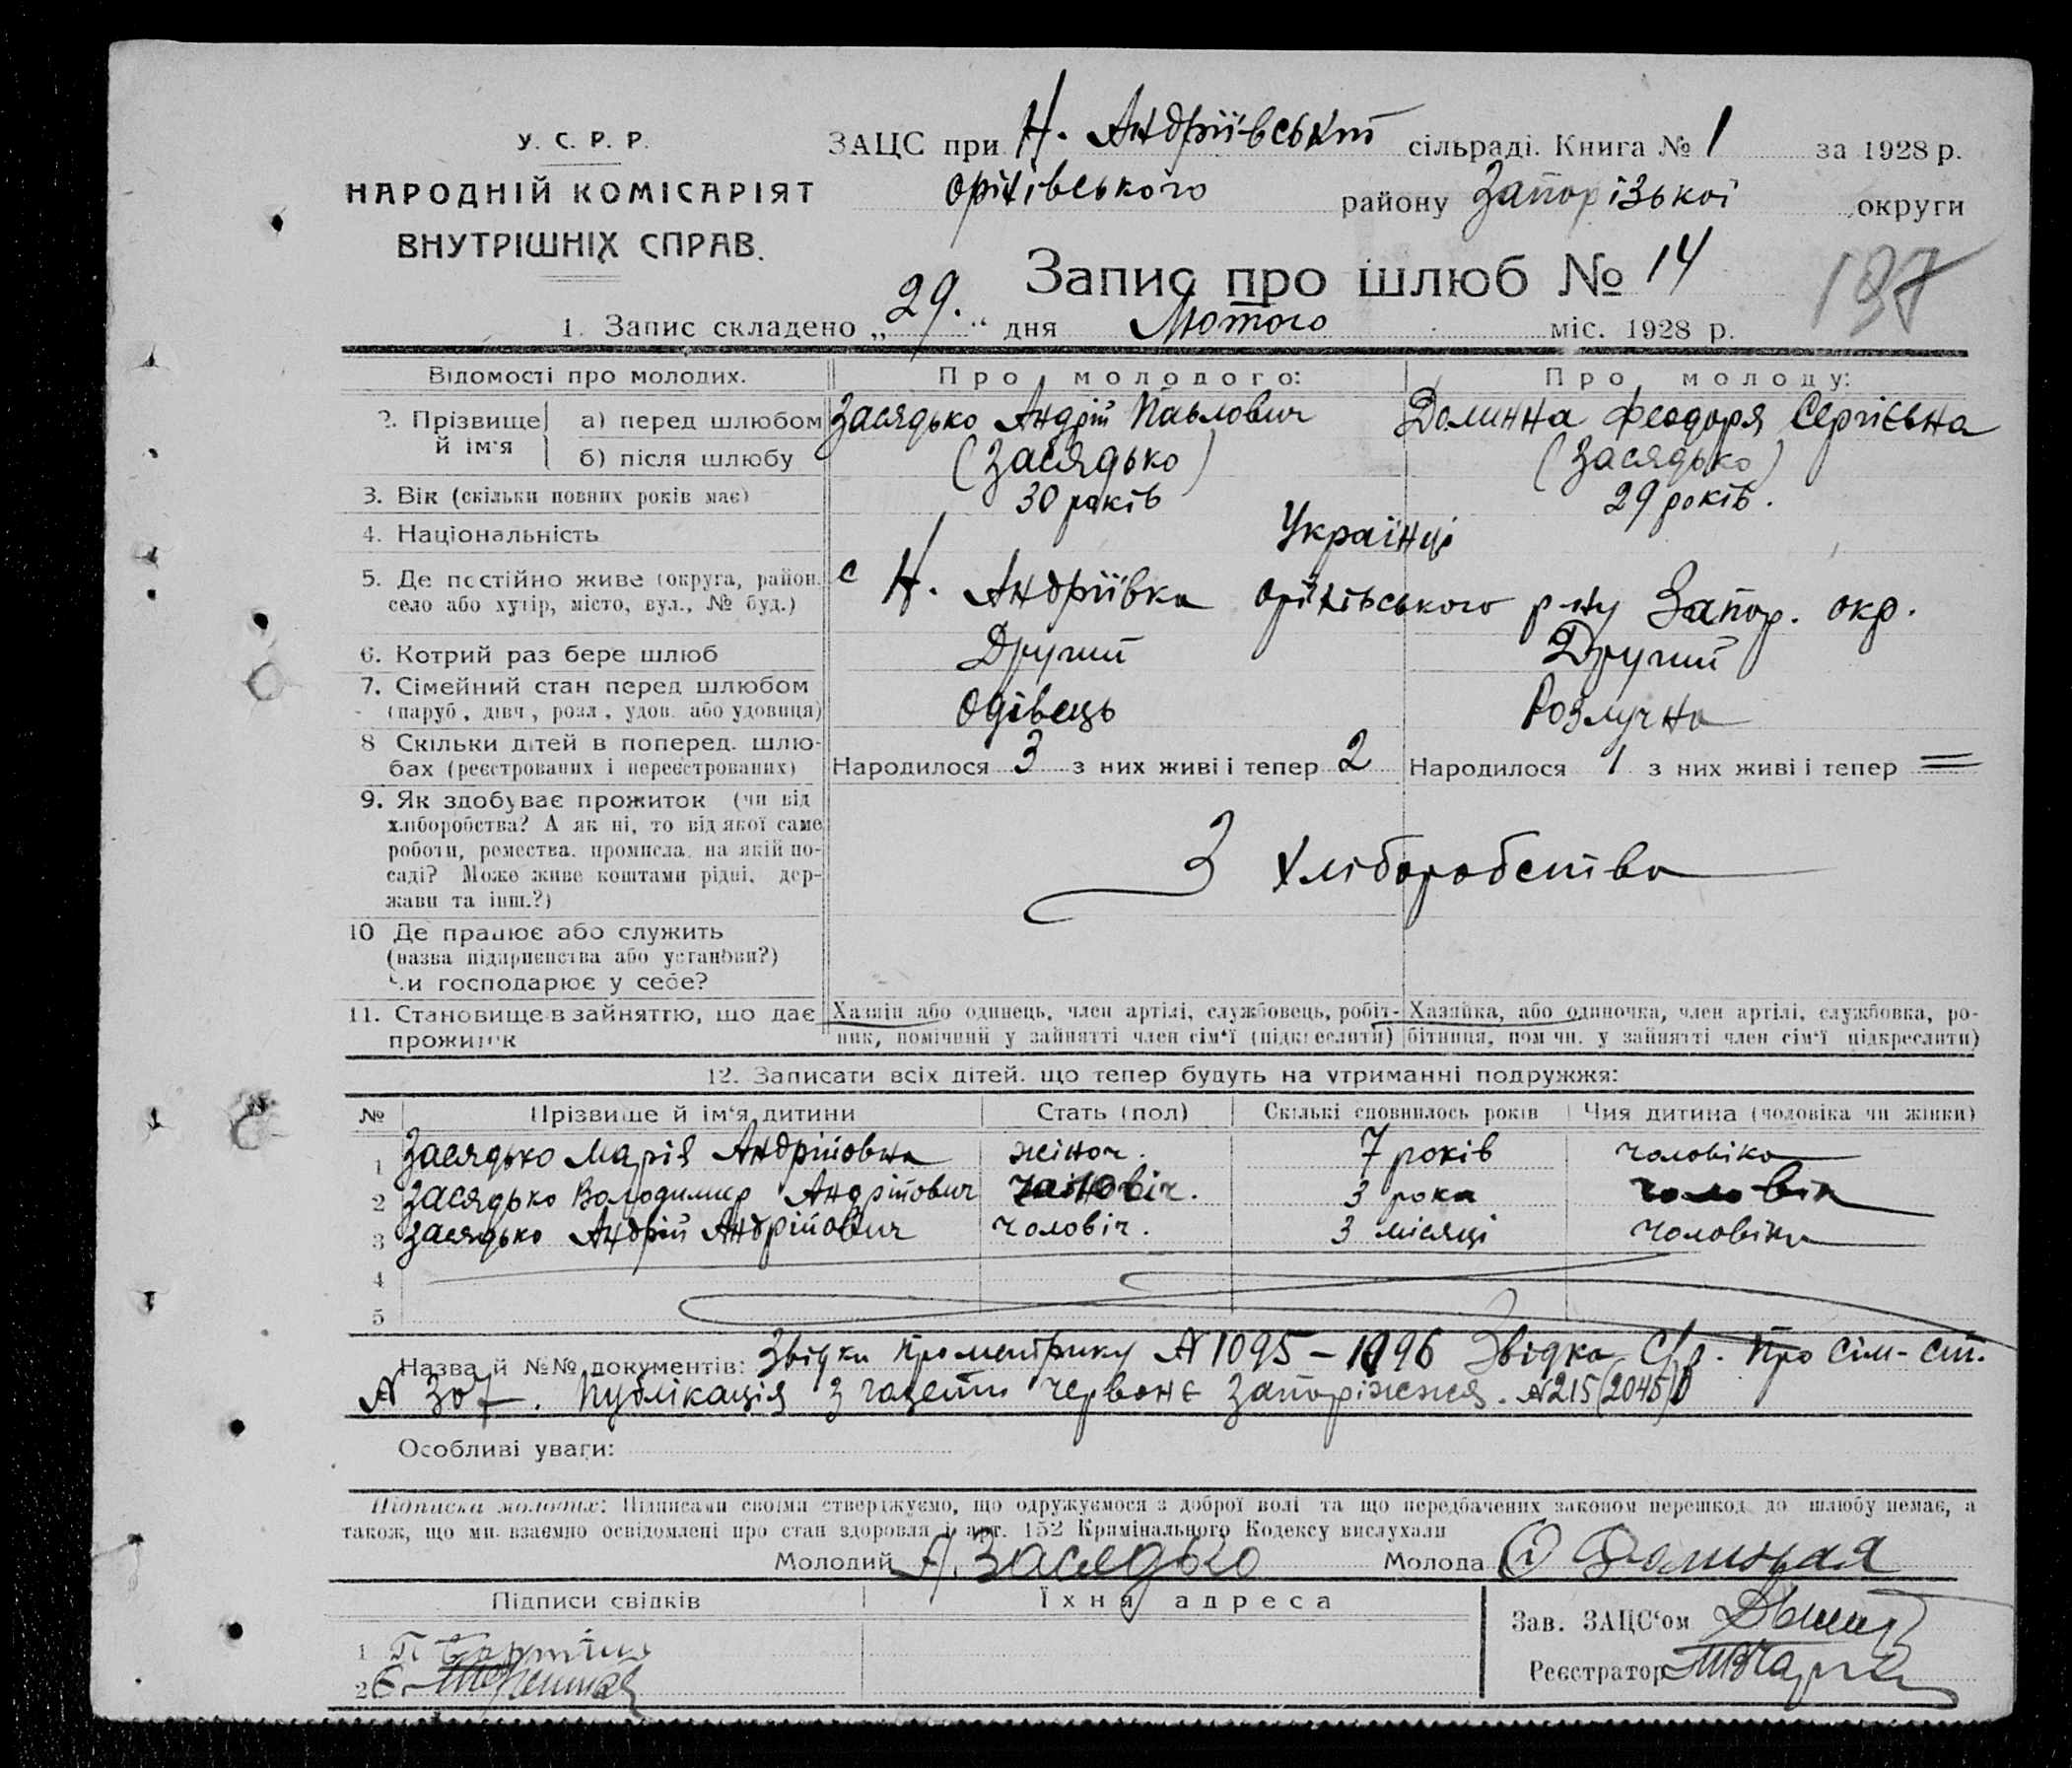 У. С. Р. Р.
НАРОДНІЙ КОМІСАРІЯТ
ВНУТРІШНІХ СПРАВ.
ЗАЦС при Н. Андріївській сільраді. Книга № 1 за 1928 р.
Оріхівського району Запорізької округи
Запис про шлюб № 14
197
1. Запис складено „29.“ дня Лютого міс. 1928 р.
Відомості про молодих. Про молодого: Про молоду:
2. Прізвище й ім'я а) перед шлюбом Засядько Андрій Павлович Долинна Феодоря Сергієвна
б) після шлюбу (Засядько) (Засядько)
3. Вік (скільки повних років має) 30 років 29 років.
4. Національність Українці
5. Де постійно живе (округа, район, село або хутір, місто, вул., № буд.) с Н. Андріївка Оріхівського р-ну Запор. окр.
6. Котрий раз бере шлюб Другий Другий
7. Сімейний стан перед шлюбом (паруб., дівч., розл., удов. або удовиця) Одівець Розлучна
8 Скільки дітей в поперед. шлюбах (реєстрованих і нереєстрованих) Народилося 3 з них живі і тепер 2 Народилося 1 з них живі і тепер =
9. Як здобуває прожиток (чи від хліборобства? А як ні, то від якої саме роботи, ремества, промисла, на якій посаді? Може живе коштами рідні, держави та інш.?) З Хліборобства
10 Де працює або служить (назва підприємства або установи?) Чи господарює у себе?
11. Становище в зайняттю, що дає прожиток Хазяїн або одинець, член артілі, службовець, робітник, помічний у зайнятті член сім'ї (підкреслити) Хазяйка, або одиночка, член артілі, службовка, робітниця, помічн. у зайнятті член сім'ї підкреслити)
12. Записати всіх дітей, що тепер будуть на утриманні подружжя:
№ Прізвище й ім'я дитини Стать (пол) Скількі сповнилось років Чия дитина (чоловіка чи жінки)
1 Засядько Марія Андрійовна жіноч. 7 років чоловіка
2 Засядько Володимир Андрійович чоловіч. 3 рока чоловік
3 Засядько Андрій Андрійович чоловіч. 3 місяці чоловіка
4
5
Назва й №№ документів: Звідки про метрику № 1095 – 1096 Звідка С/р. про сім-ст.
№ 307. Публікація з газети червоне запоріжжя. № 215 (2045)
Особливі уваги:
Підписка молодих: Підписами своїми стверджуємо, що одружуємося з доброї волі та що передбачених законом перешкод до шлюбу немає, а
також, що ми взаємно освідомлені про стан здоровля і арт. 152 Кримінального Кодексу вислухали
Молодий А. Засядько Молода Долинная
Підписи свідків Їхня адреса
Зав. ЗАЦС'ом
1 П
2 Є.
Реєстратор